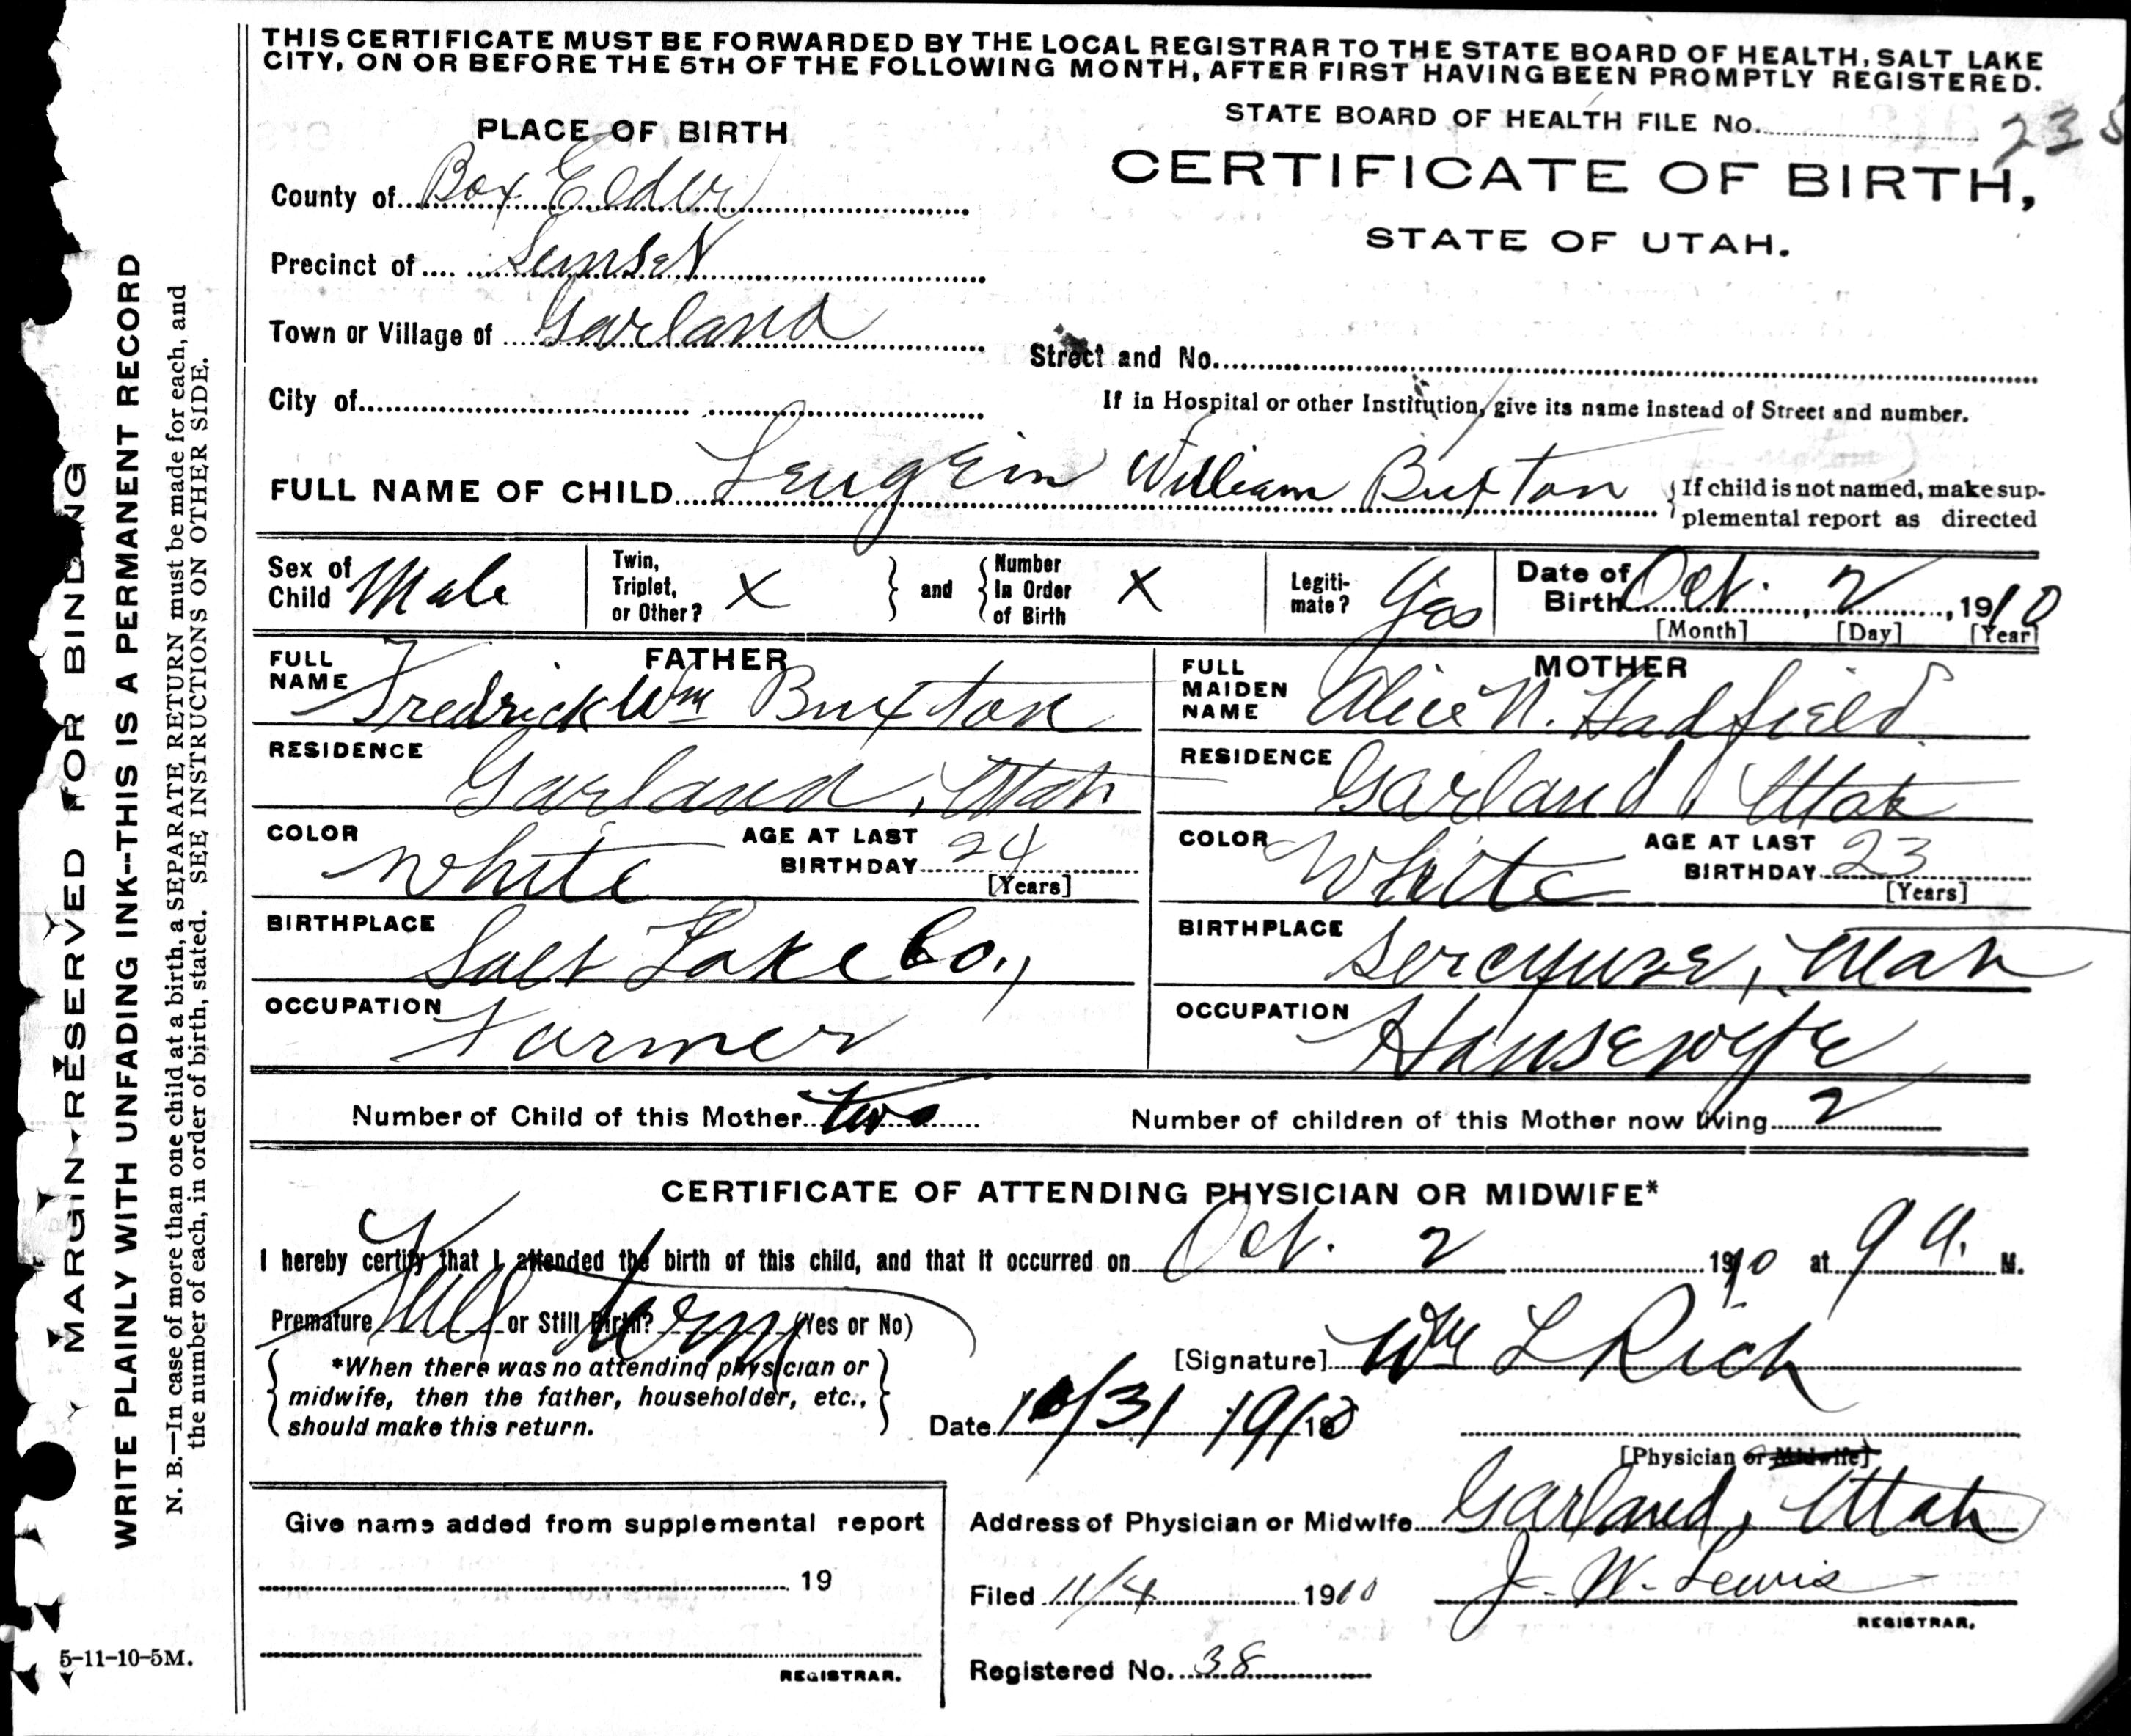 THIS CERTIFICATE MUST BE FORWARDED BY THE LOCAL REGISTRAR TO THE STATE BOARD OF HEALTH, SALT LAKE
CITY, ON OR BEFORE THE 5TH OF THE FOLLOWING MONTH, AFTER FIRST HAVING BEEN PROMPTLY REGISTERED.
STATE BOARD OF HEALTH FILE No. 23
PLACE OF BIRTH
CERTIFICATE OF BIRTH,
STATE OF UTAH.
County of Box Elder
Precinct of Sunset
Town or Village of Garland
Street and No.
City of
If in Hospital or other Institution, give its name instead of Street and number.
FULL NAME OF CHILD William Buxton
If child is not named, make sup-
plemental report as directed
Sex of Child Male
Twin, Triplet, or Other? X
and Number In Order of Birth X
Legiti-mate? Yes
Date of Birth Oct. 2, 1910
[Month] [Day] [Year]
FATHER
FULL NAME Fredrick Wm Buxton
RESIDENCE Garland, Utah
COLOR White AGE AT LAST BIRTHDAY 24
[Years]
BIRTHPLACE Salt Lake Co.,
OCCUPATION Farmer
MOTHER
FULL MAIDEN NAME Alice N. Hadfield
RESIDENCE Garland, Utah
COLOR White AGE AT LAST BIRTHDAY 23
[Years]
BIRTHPLACE Sercyuse, Utah
OCCUPATION Housewife
Number of Child of this Mother two
Number of children of this Mother now living 2
CERTIFICATE OF ATTENDING PHYSICIAN OR MIDWIFE*
I hereby certify that I attended the birth of this child, and that it occurred on Oct. 2 1910 at 9 A. M.
Premature or Still Birth? (Yes or No)
Full term
*When there was no attending physician or
midwife, then the father, householder, etc.,
should make this return.
[Signature] Wm L Rich
Date 10/31 1910 19
[Physician or Midwife]
Give name added from supplemental report
19
REGISTRAR.
Address of Physician or Midwife Garland, Utah
Filed 11/4 1910 J. W. Lewis
REGISTRAR.
Registered No. 38
MARGIN RESERVED FOR BINDING
WRITE PLAINLY WITH UNFADING INK--THIS IS A PERMANENT RECORD
N. B.—In case of more than one child at a birth, a SEPARATE RETURN must be made for each, and
the number of each, in order of birth, stated. SEE INSTRUCTIONS ON OTHER SIDE.
5-11-10-5M.